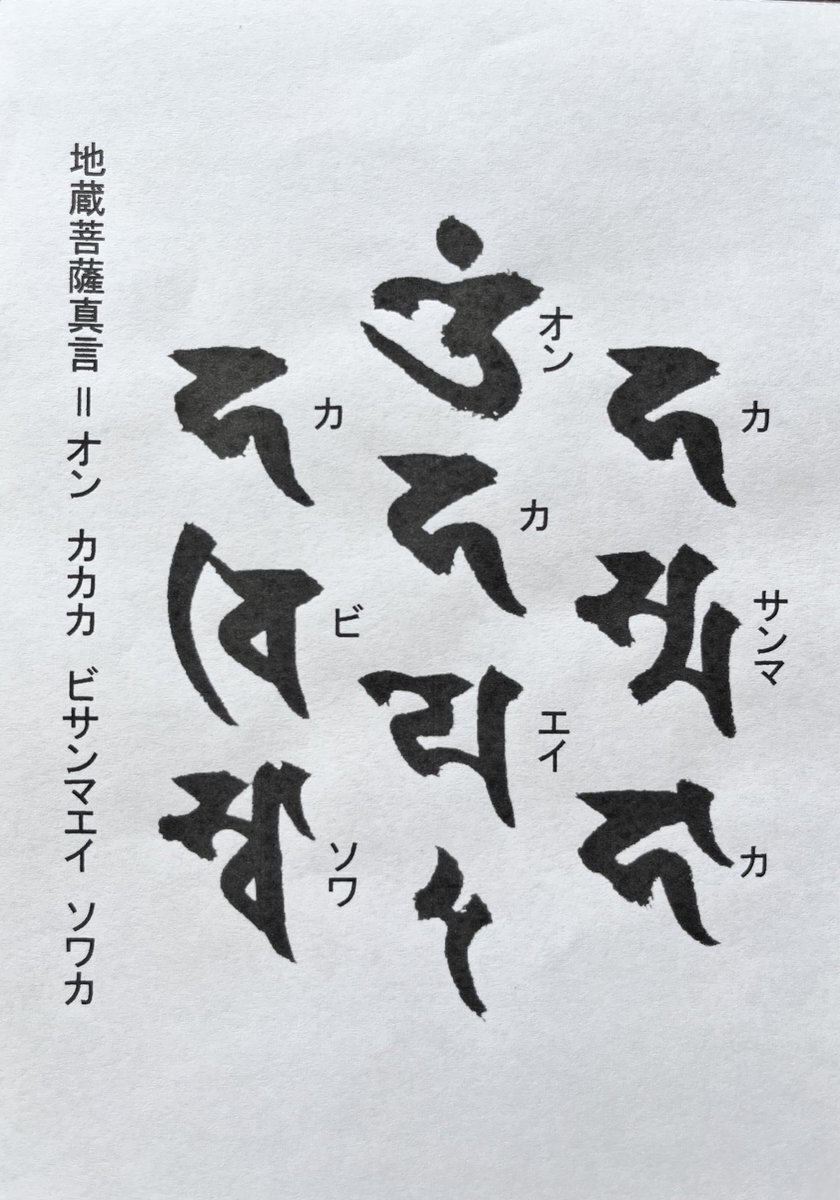 𑖌𑖼 オン
𑖮 カ
𑖮 カ
𑖮 カ
𑖪𑖰 ビ
𑖭𑖿𑖦 サンマ
𑖧𑖸 エイ
𑖭𑖿𑖪𑖯 ソワ
𑖮𑖯 カ
地蔵菩薩真言＝オン カカカ ビサンマエイ ソワカ